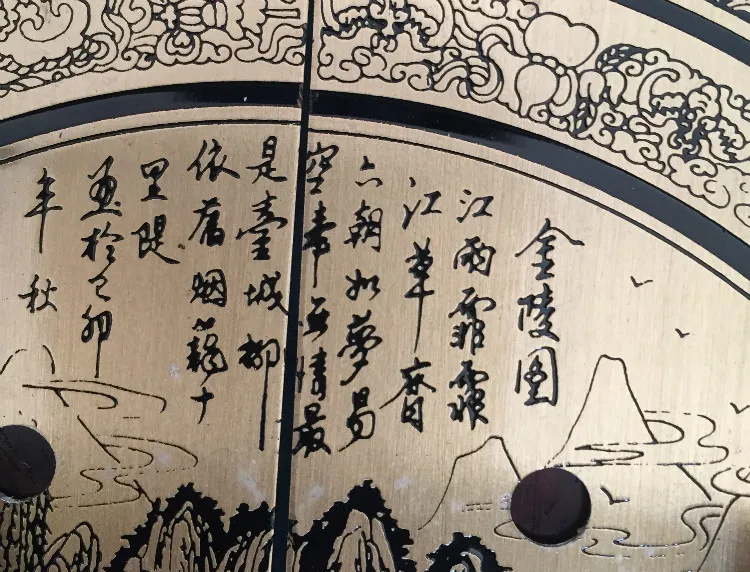 金陵圖
江雨霏霏
江草齊
六朝如夢鳥
空啼無情最
是臺城柳
依舊烟籠十
里堤
於己卯
年秋